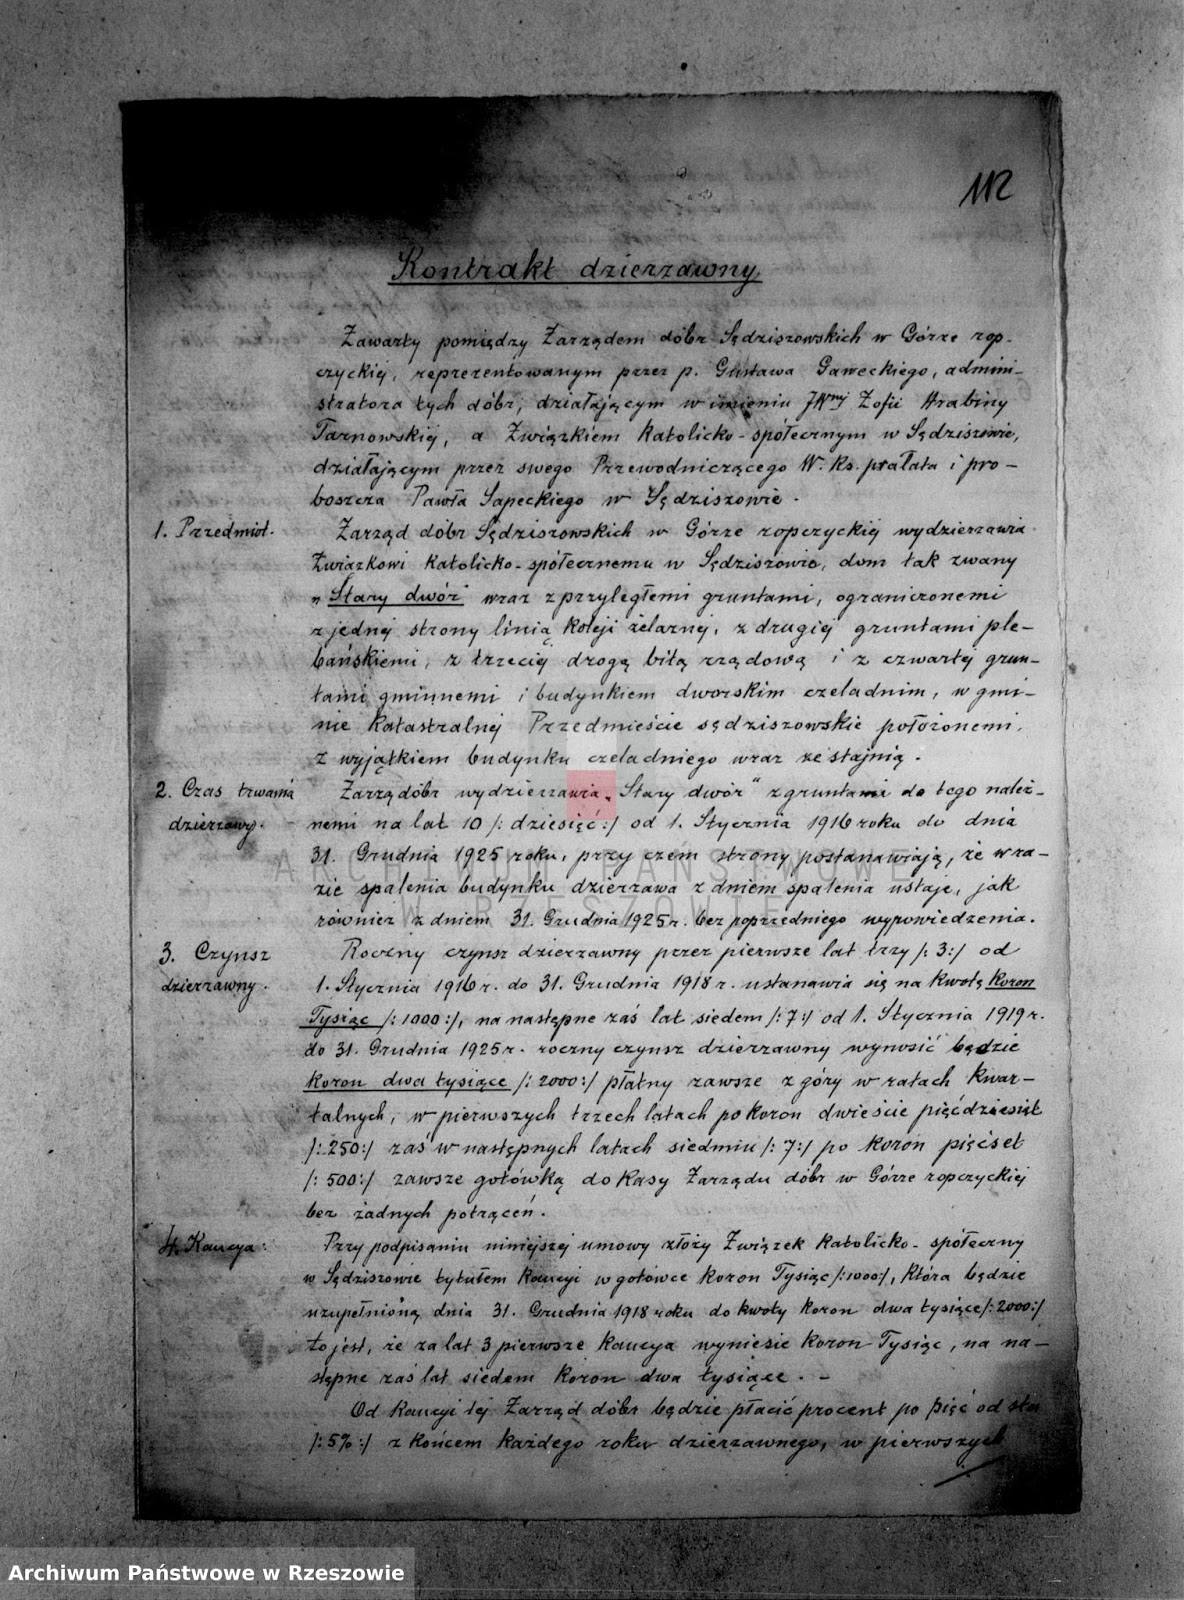 112
Kontrakt dzierżawny.
Zawarty pomiędzy Zarządem dóbr Sędziszowskich w Górze rop-
czyckiéj, reprezentowanym przez p. Gustawa Gaweckiego, admini-
stratora tych dóbr, działającym w imieniu JWnej Zofii Hrabiny
Tarnowskiéj, a Związkiem Katolicko-społecznym w Sędziszowie,
działającym przez swego Przewodniczącego W. Ks. prałata i pro-
boszcza Pawła Sapeckiego w Sędziszowie.
1. Przedmiot.
Zarząd dóbr Sędziszowskich w Górze ropczyckiéj wydzierżawia
Związkowi Katolicko-społecznemu w Sędziszowie, dom tak zwany
„Stary dwór" wraz z przyległemi gruntami, ograniczonemi
z jednej strony linią kolei żelaznej, z drugiéj gruntami ple-
bańskiemi, z trzeciéj drogą bitą rządową i z czwartéj grun-
tami gminnemi i budynkiem dworskim czeladnim, w gmi-
nie katastralnéj Przedmieście sędziszowskie położonemi,
z wyjątkiem budynku czeladniego wraz ze stajnią.
2. Czas trwania
dzierżawy.
Zarząd dóbr wydzierżawia „Stary dwór" z gruntami do tego należ-
nemi na lat 10 /: dziesięć :/ od 1. Stycznia 1916 roku do dnia
31. Grudnia 1925 roku, przy czem strony postanawiają, że w ra-
zie spalenia budynku dzierżawa z dniem spalenia ustaje, jak
również z dniem 31. Grudnia 1925 r. bez poprzedniego wypowiedzenia.
3. Czynsz
dzierżawny.
Roczny czynsz dzierżawny przez pierwsze lat trzy /: 3 :/ od
1. Stycznia 1916 r. do 31. Grudnia 1918 r. ustanawia się na kwotę Koron
Tysiąc /: 1000 :/, na następne zaś lat siedem /: 7 :/ od 1. Stycznia 1919 r.
do 31. Grudnia 1925 r. roczny czynsz dzierżawny wynosić będzie
Koron dwa tysiące /: 2000 :/ płatny zawsze z góry w ratach kwar-
talnych, w pierwszych trzech latach po Koron dwieście pięćdziesiąt
/: 250 :/ zaś w następnych latach siedmiu /: 7 :/ po Koron pięćset
/: 500 :/ zawsze gotówką do Kasy Zarządu dóbr w Górze ropczyckiéj
bez żadnych potrąceń.
4. Kaucya:
Przy podpisaniu niniejszéj umowy złoży Związek Katolicko-społeczny
w Sędziszowie tytułem Kaucyi w gotówce Koron Tysiąc /: 1000 :/, która będzie
uzupełnioną dnia 31. Grudnia 1918 roku do kwoty Koron dwa tysiące /: 2000 :/
to jest, że za lat 3 pierwsze Kaucya wyniesie Koron Tysiąc, na na-
stępne zaś lat siedem Koron dwa tysiące. -
Od Kaucyi téj Zarząd dóbr będzie płacić procent po pięć od sta
/: 5% :/ z końcem każdego roku dzierżawnego, w pierwszych
ARCHIWUM PAŃSTWOWE
W RZESZOWIE
Archiwum Państwowe w Rzeszowie